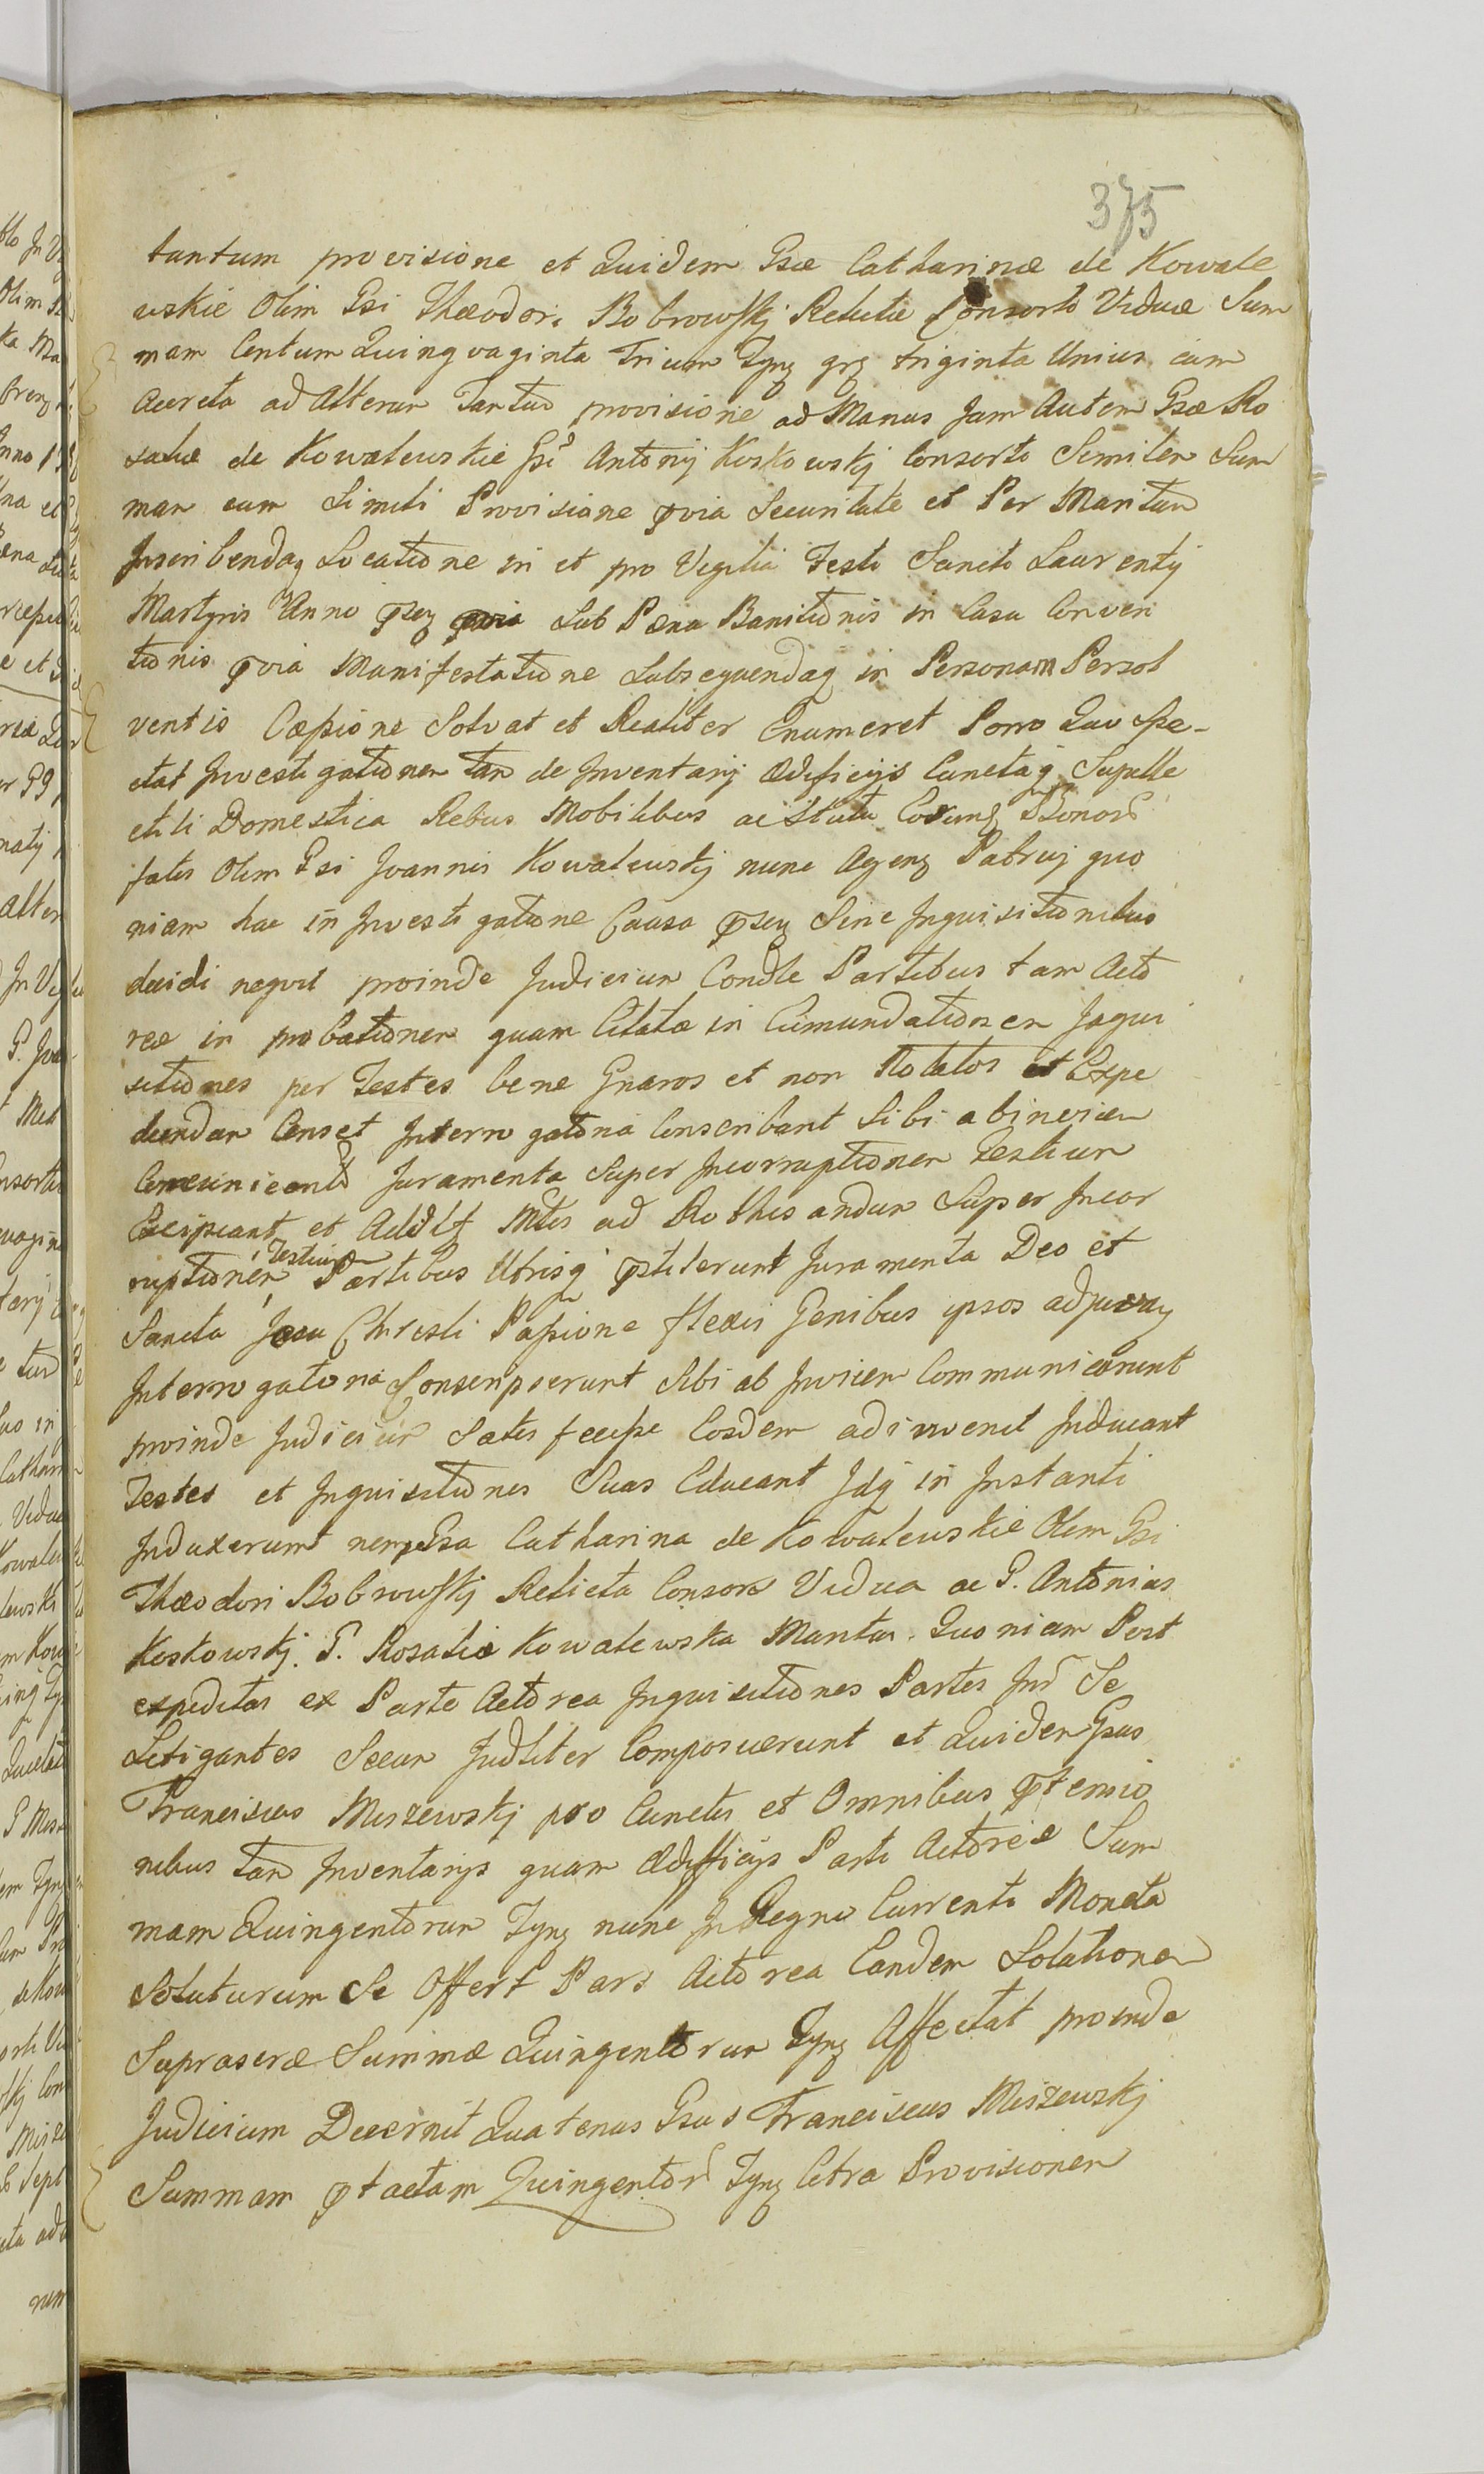 375
tantum provisione et Quidem Gsæ Catharinæ de Kowale
wskie Olim Gsi Theodori Bobrowskj Relictæ Consorti Viduæ Sum
mam Centum Quinqvaginta Trium Tynz grz triginta Unius cum
Acereta ad Alterum Tantum provisione ad Manus Jam Autem Gsæ Ro
saliæ de Kowalewskie Gsi Antonij Koskowskj Consorti Similem Sum
mam cum Simili Provisione qvia Securitate et Per Maritum
Inscribendaq Locatione in et pro Vigilia Festi Sancti Laurentij
Martyris Anno pszq Sub Pæna Banitionis in Casu Conven
tionis qvia Manifestatione Subseqvendaq in Personam Persol
ventis Cæssione Solvat et Realiter Enumeret Porro Quo Spe-
ctat Investigationem tam de Inventarij Ædificijs Cunctaq Supelle
ctili Domestica Rebus Mobilibus ac Statu Eorumq Bonor
fatis Olim Gsi Joannis Kowalewskj nunc Agenz Patruj quo
niam hac in Investigatione Causa pszq Sine Inquisitionibus
decidi neqvit proinde Judicium Condle Partibus tam Acto
reæ in probationem quam Citatæ in Eumundationem Inqui
sitiones per Testes bene Gnaros et non Notatos et Expe
diendam Censet Interrogatoria Conscribant Sibi abinvicem
Communicent Juramenta Super Incorruptionem Testium
Excipiant et Ad Mtis ad Rothisandum Super Incor
ruptionem Testium Partibus Utrisq pstiterunt Juramenta Deo et
Sancta Jesu Christi Passione flexis Genibus ipsos adjuvaq
Interrogatoria Conscripserunt Sibi ab Invicem Communicarunt
proinde Judicium Satis fecisse Eosdem adinvenit Inducant
Testes et Inquisitiones Suas Educant Idq in Instanti
Induxerunt nempe Gsa Catharina de Kowalewskie Olim Gsi
Theodori Bobrowskj Relicta Consors Vidua ac G. Antonius
Koskowskj. G. Rosaliæ Kowalewska Maritus. Quoniam Post
expeditas ex Parte Actorea Inquisitiones Partes Inr Se
Litigantes Secum Judliter Composuerunt et Quidem Gsus
Franciscus Miszewskj pro Cunctis et Omnibus ptensio
nibus tam Inventarijs quam Ædifficijs Parti Actoreæ Sum
mam Quingentorum Tynz nunc In Regno Currenti Moneta
Soluturum Se Offert Pars Actorea Eandem Solutionem
Suprascræ Summæ Quingentorum Tynz Affectat proinde
Judicium Decernit Quatenus Gsus Franciscus Miszewskj
Summam ptactam Quingentor Tynz Citra Provisionem